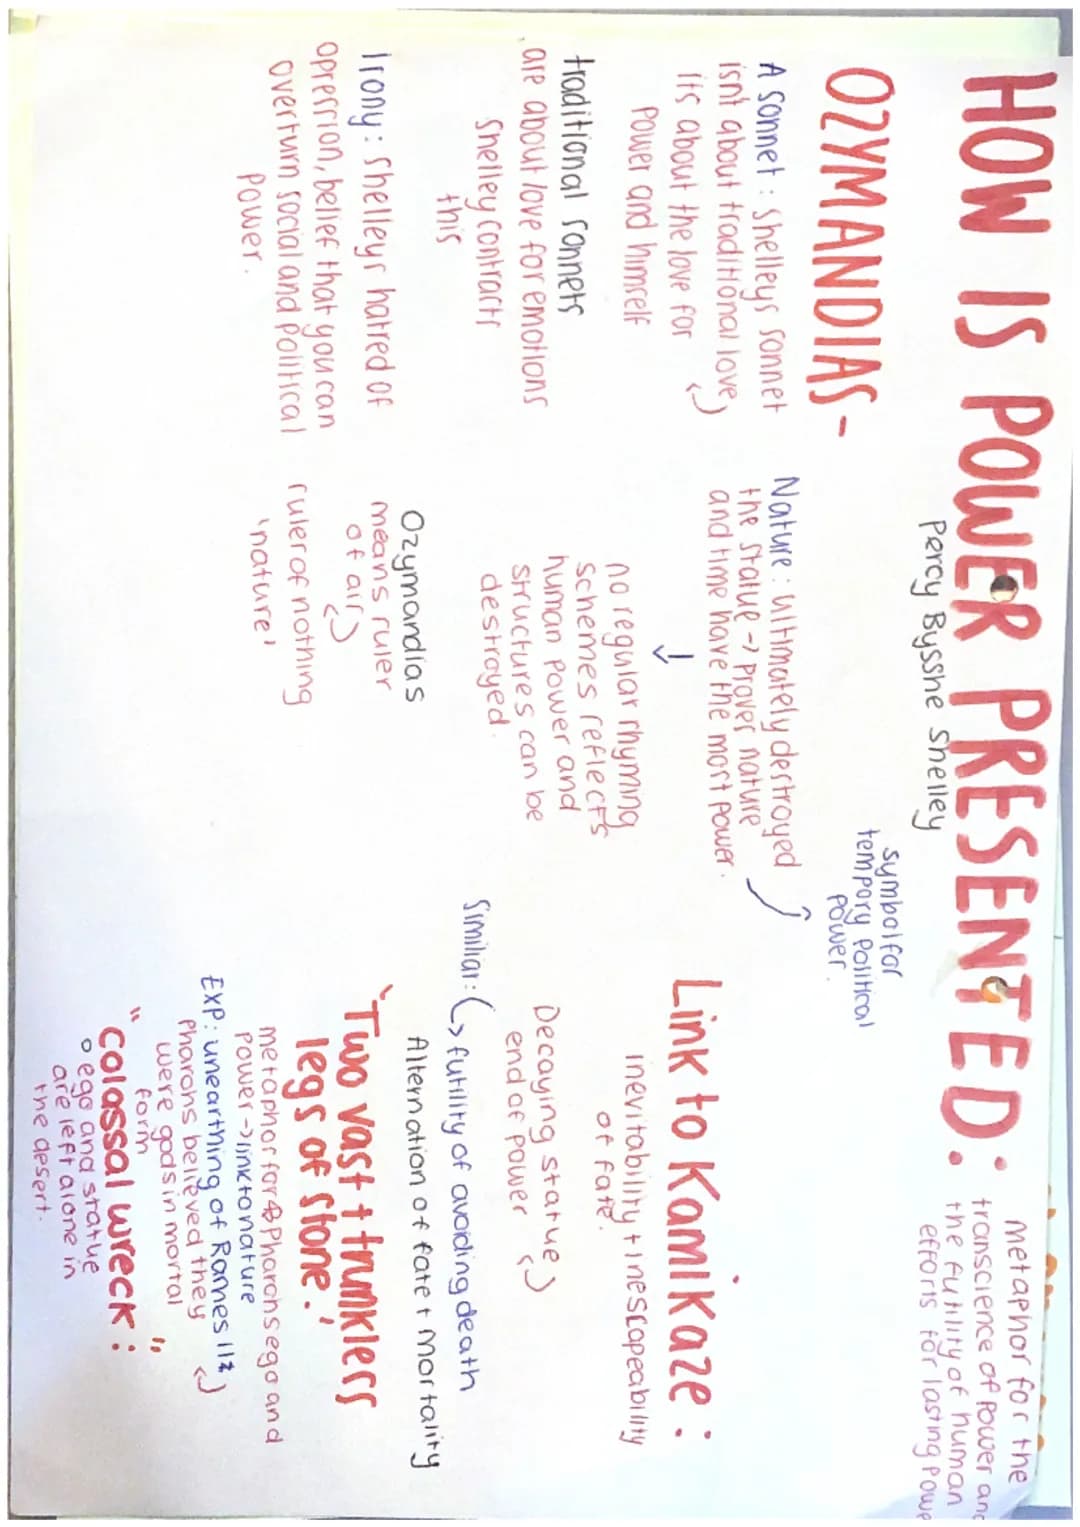 HOW IS POWER PRESENTED:
Percy Bysshe Shelley
metaphor for the
transcience of power and
the futility of human
efforts for lasting powe
OZYMANDIAS-
A sonnet: Shelleys sonnet
isnt about traditional love
its about the love for
power and himself
traditional sonnets
are about love for emotions
shelley contracts
this
Irony: Shelleys hatred of
opression, belief that you can
overturn social and political
power.
symbol for
tempory political
power.
Nature: ultimately destroyed
the statue -> Proves nature
and time have the most power.
↓
no regular rhyming
schemes reflects
human power and
structures can be
destroyed.
Ozymandias
means ruler
of air
ruler of nothing
'nature'
Link to Kamikaze:
inevitability + inescapeability
of fate.
Decaying statue
end of power
Similiar: ↳ futility of avoiding death
Alternation of fate + mortality
'Two vast + trunkless
legs of stone.'
metaphor for Pharohs ego and
power -> link to nature
Exp: unearthing of Ramses II
Pharohs believed they
were gods in mortal
form
"colossal wreck":
ego and statue
are left alone in
the desert.